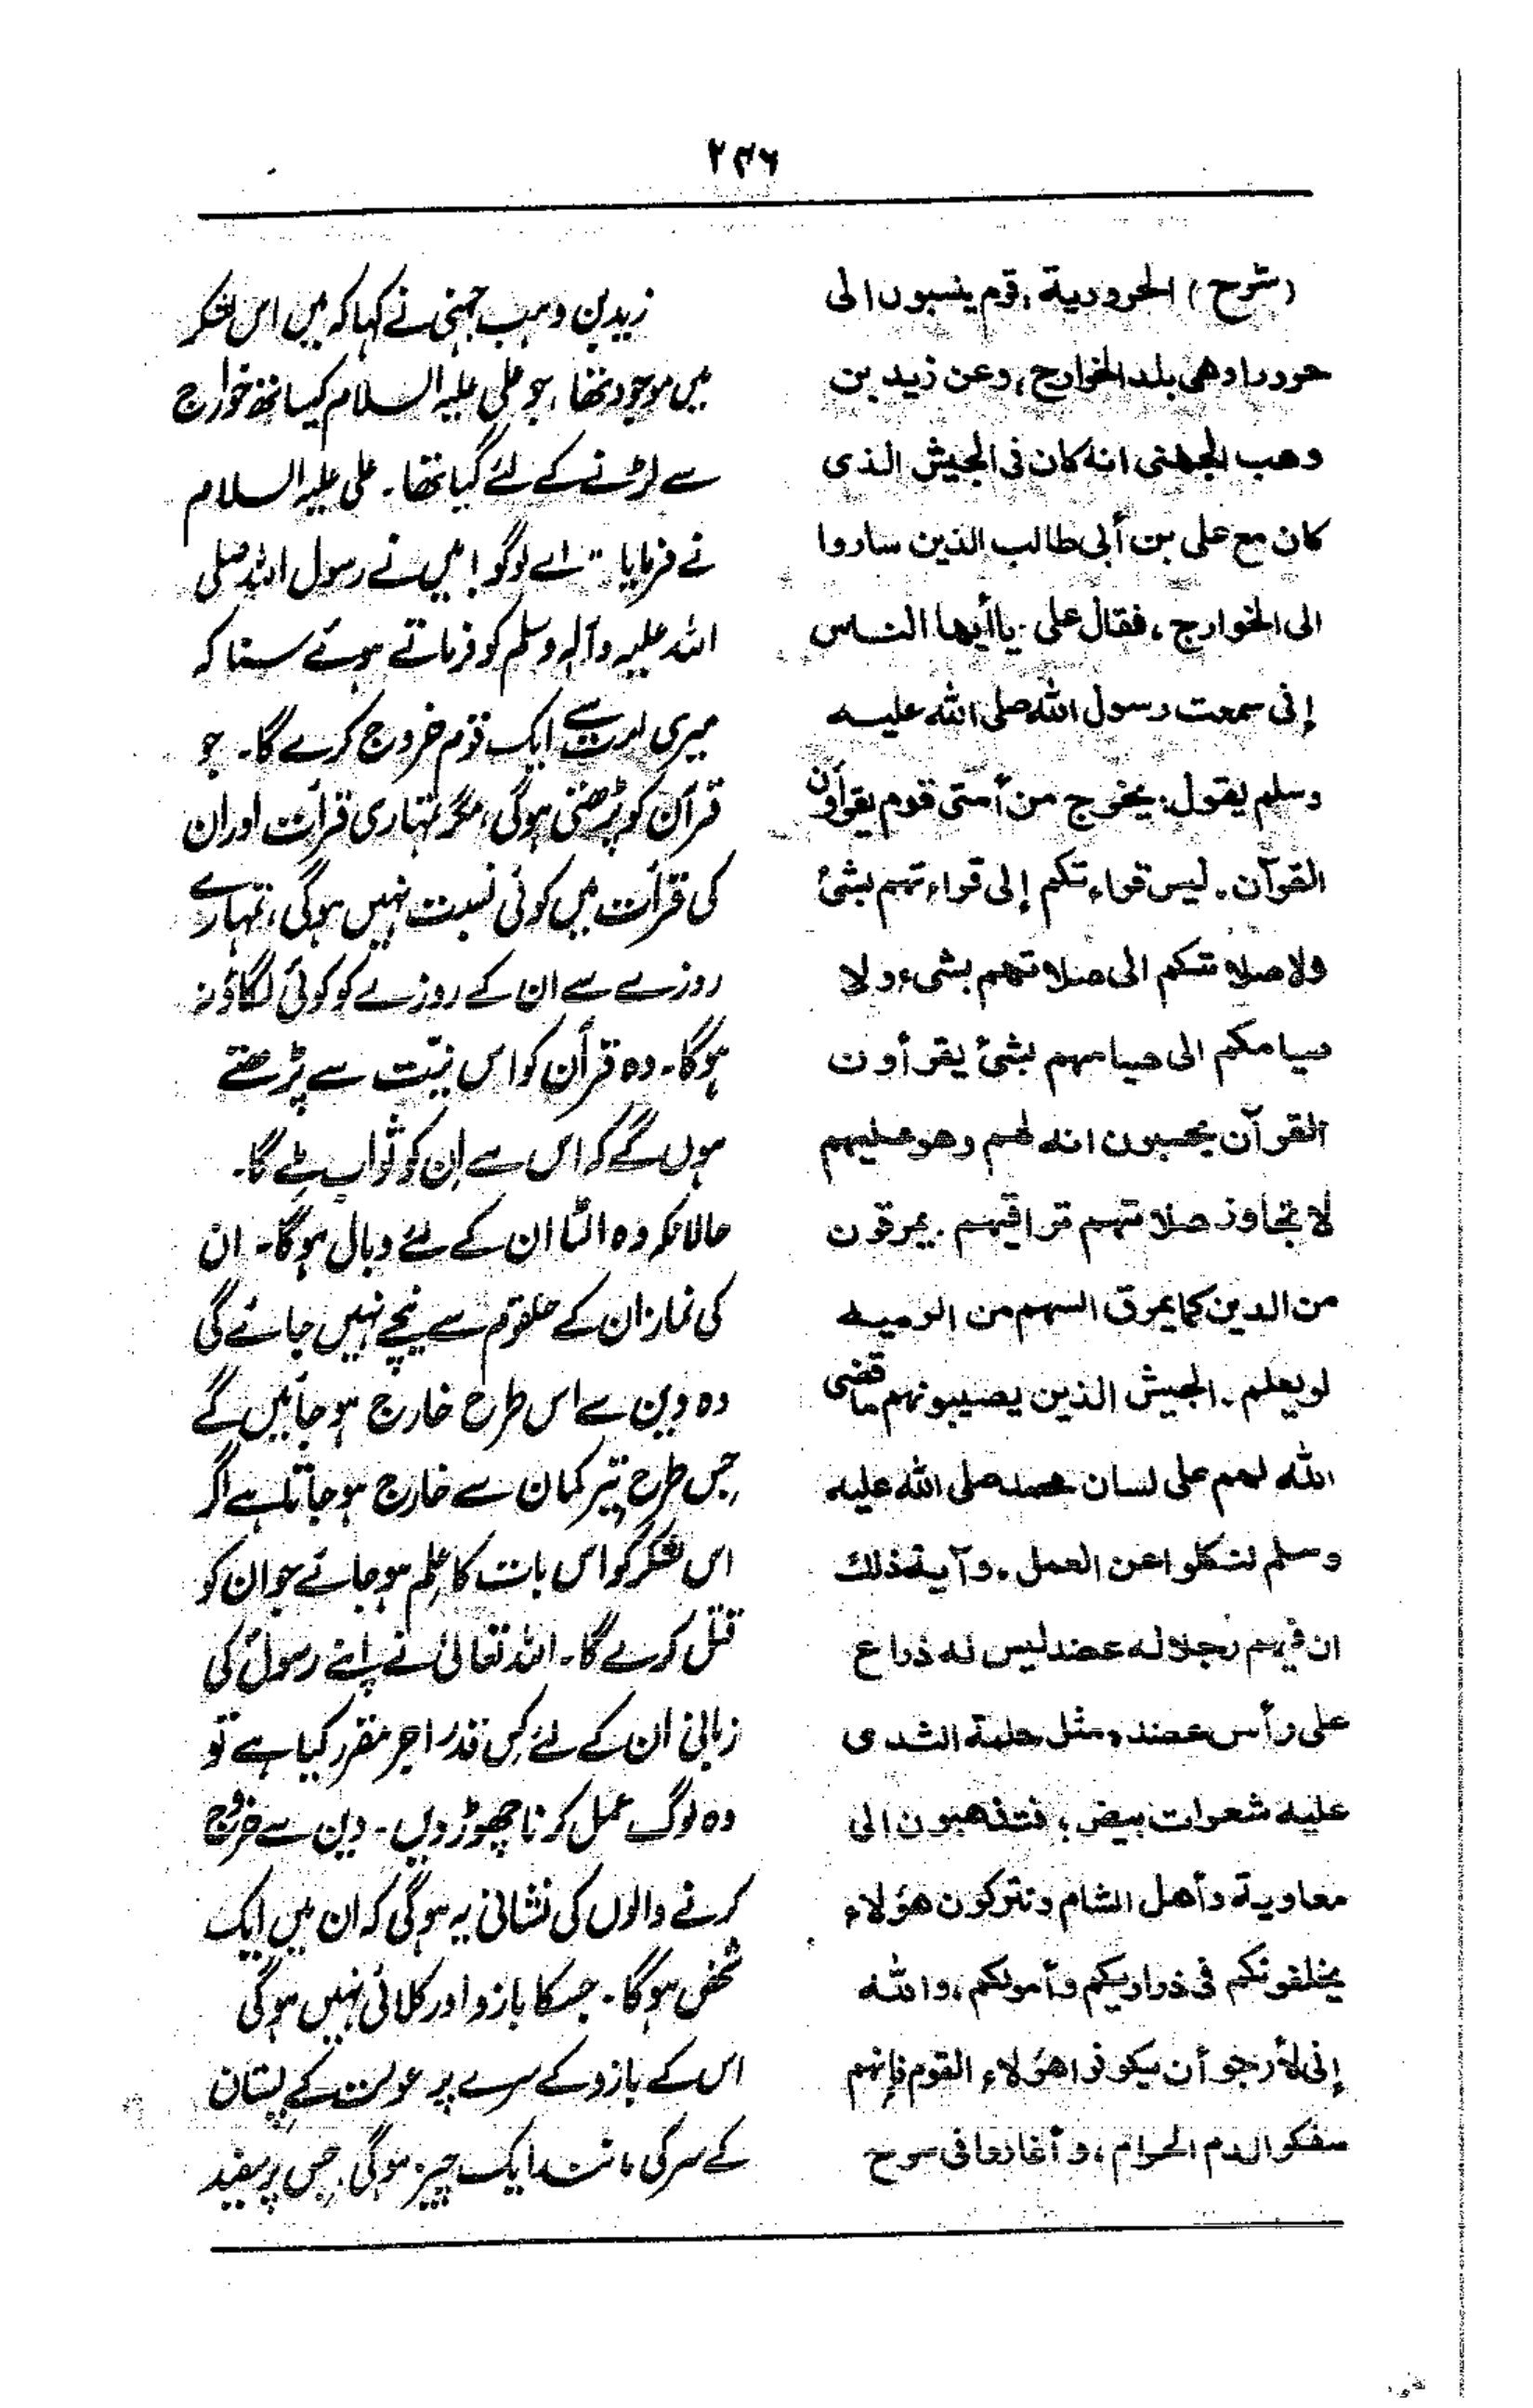 ۲۴۶
(شرح) الحرورية، قوم ينسبون الى
حرورا وهى بلد الخوارج، وعن زيد بن
وهب الجهنى انه كان فى الجيش الذى
كان مع على بن أبى طالب الذين ساروا
الى الخوارج، فقال على: ياأيها الناس
إنى سمعت رسول الله صلى الله عليه
وسلم يقول: يخرج من أمتى قوم يقرأون
القرآن. ليس قراءتكم إلى قراءتهم بشئ
ولا صلاتكم الى صلاتهم بشىء ولا
صيامكم الى صيامهم بشئ يقرأون
القرآن يحسبون انه لهم وهو عليهم
لا تجاوز صلاتهم تراقيهم. يمرقون
من الدين كما يمرق السهم من الرميه
لو يعلم. الجيش الذين يصيبونهم ما قضى
الله لهم على لسان محمد صلى الله عليه
وسلم لنكلوا عن العمل. وآية ذلك
ان فيهم رجلا له عضد ليس له ذراع
على رأس عضده مثل حلمة الثدى
عليه شعرات بيض، فتذهبون الى
معاوية وأهل الشام وتتركون هؤلاء
يخلفونكم فى ذراريكم وأمولكم، والله
إنى لأرجو أن يكونوا هؤلاء القوم فإنهم
سفكوا الدم الحرام، وأغاروا فى سرح
زید بن وہب جہنی نے کہا کہ میں اس لشکر
میں موجود تھا، جو علی علیہ السلام کیساتھ خوارج
سے لڑنے کے لئے گیا تھا۔ علی علیہ السلام
نے فرمایا: اے لوگو! میں نے رسول اللہ صلی
اللہ علیہ وآلہ وسلم کو فرماتے ہوئے سنا کہ
میری امت سے ایک قوم خروج کرے گا۔ جو
قرآن کو پڑھتی ہوگی، مگر تمہاری قرأت اور ان
کی قرأت میں کوئی نسبت نہیں ہوگی، تمہارے
روزے سے ان کے روزے کو کوئی لگاؤ نہ
ہوگا۔ وہ قرآن کو اس نیّت سے پڑھتے
ہوں گے کہ اس سے اِن کو ثواب ملے گا۔
حالانکہ وہ الٹا ان کے لئے وبال ہوگا۔ ان
کی نماز ان کے حلقوم سے نیچے نہیں جائے گی
وہ دین سے اس طرح خارج ہو جائیں گے
جس طرح تیر کمان سے خارج ہو جاتا ہے اگر
اس لشکر کو اس بات کا علم ہو جائے جو ان کو
قتل کرے گا۔ اللہ تعالیٰ نے اپنے رسولؐ کی
زبانی ان کے لئے کس قدر اجر مقرر کیا ہے تو
وہ لوگ عمل کرنا چھوڑ دیں۔ دین سے خروج
کرنے والوں کی نشانی یہ ہوگی کہ ان میں ایک
شخص ہوگا۔ جسکا بازو اور کلائی نہیں ہوگی
اس کے بازو کے سرے پر عورت کے پستان
کے سر کی مانند ایک چیز ہوگی، جس پر سفید